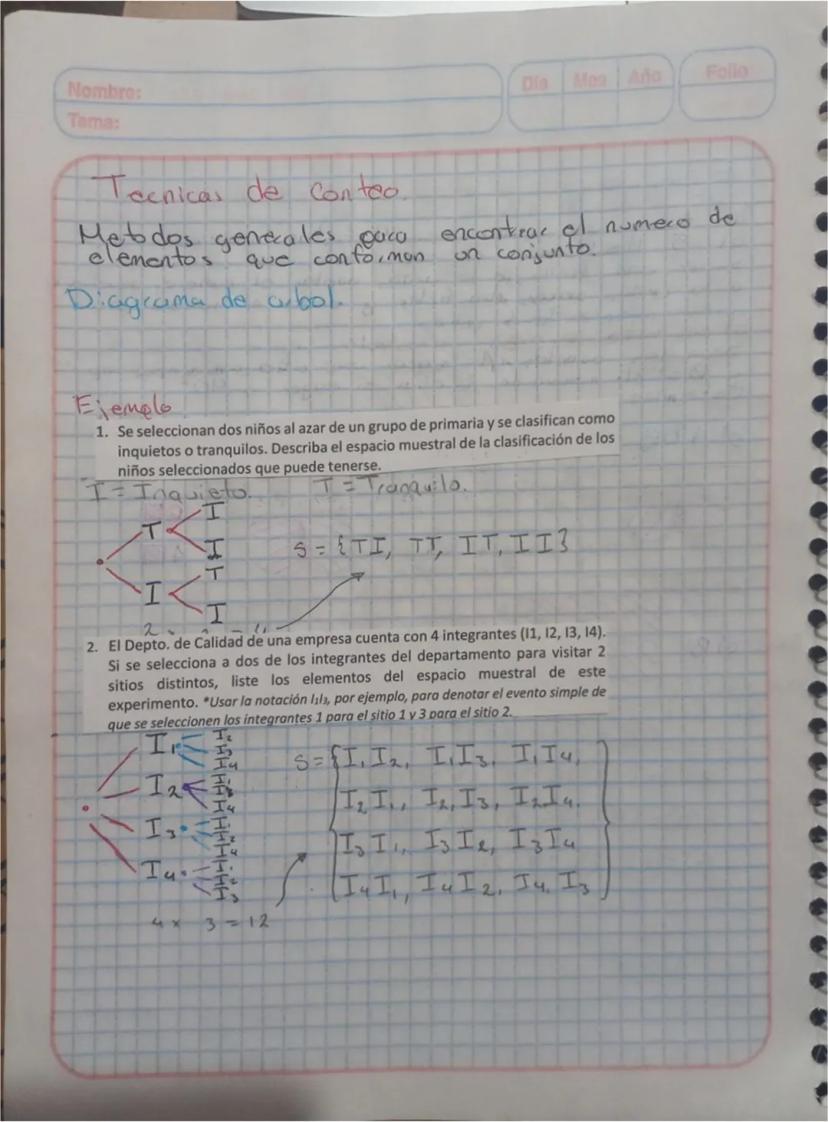 Nombre:
Tema:
Día Mes Año
Folio
Tecnicas de conteo.
Metodos generales para encontrar el numero de
elementos que conforman un conjunto.
Diagrama de arbol.
Ejemplo
1. Se seleccionan dos niños al azar de un grupo de primaria y se clasifican como
inquietos o tranquilos. Describa el espacio muestral de la clasificación de los
niños seleccionados que puede tenerse.
I = Inquieto. T = Tranquilo.
I
T
I
S = {TI, TT, IT, II}
T
I
I
2. El Depto. de Calidad de una empresa cuenta con 4 integrantes (I1, I2, I3, I4).
Si se selecciona a dos de los integrantes del departamento para visitar 2
sitios distintos, liste los elementos del espacio muestral de este
experimento. *Usar la notación I₁I₃, por ejemplo, para denotar el evento simple de
que se seleccionen los integrantes 1 para el sitio 1 y 3 para el sitio 2.
I₁ I₂ I₃ I₄
I₂ I₁ I₃ I₄
I₃ I₁ I₂ I₄
I₄ I₁ I₂ I₃
S = {I₁I₂, I₁I₃, I₁I₄,
I₂I₁, I₂,I₃, I₂I₄.
I₃I₁, I₃I₂, I₃I₄
I₄I₁, I₄I₂, I₄, I₃}
4 x 3 = 12